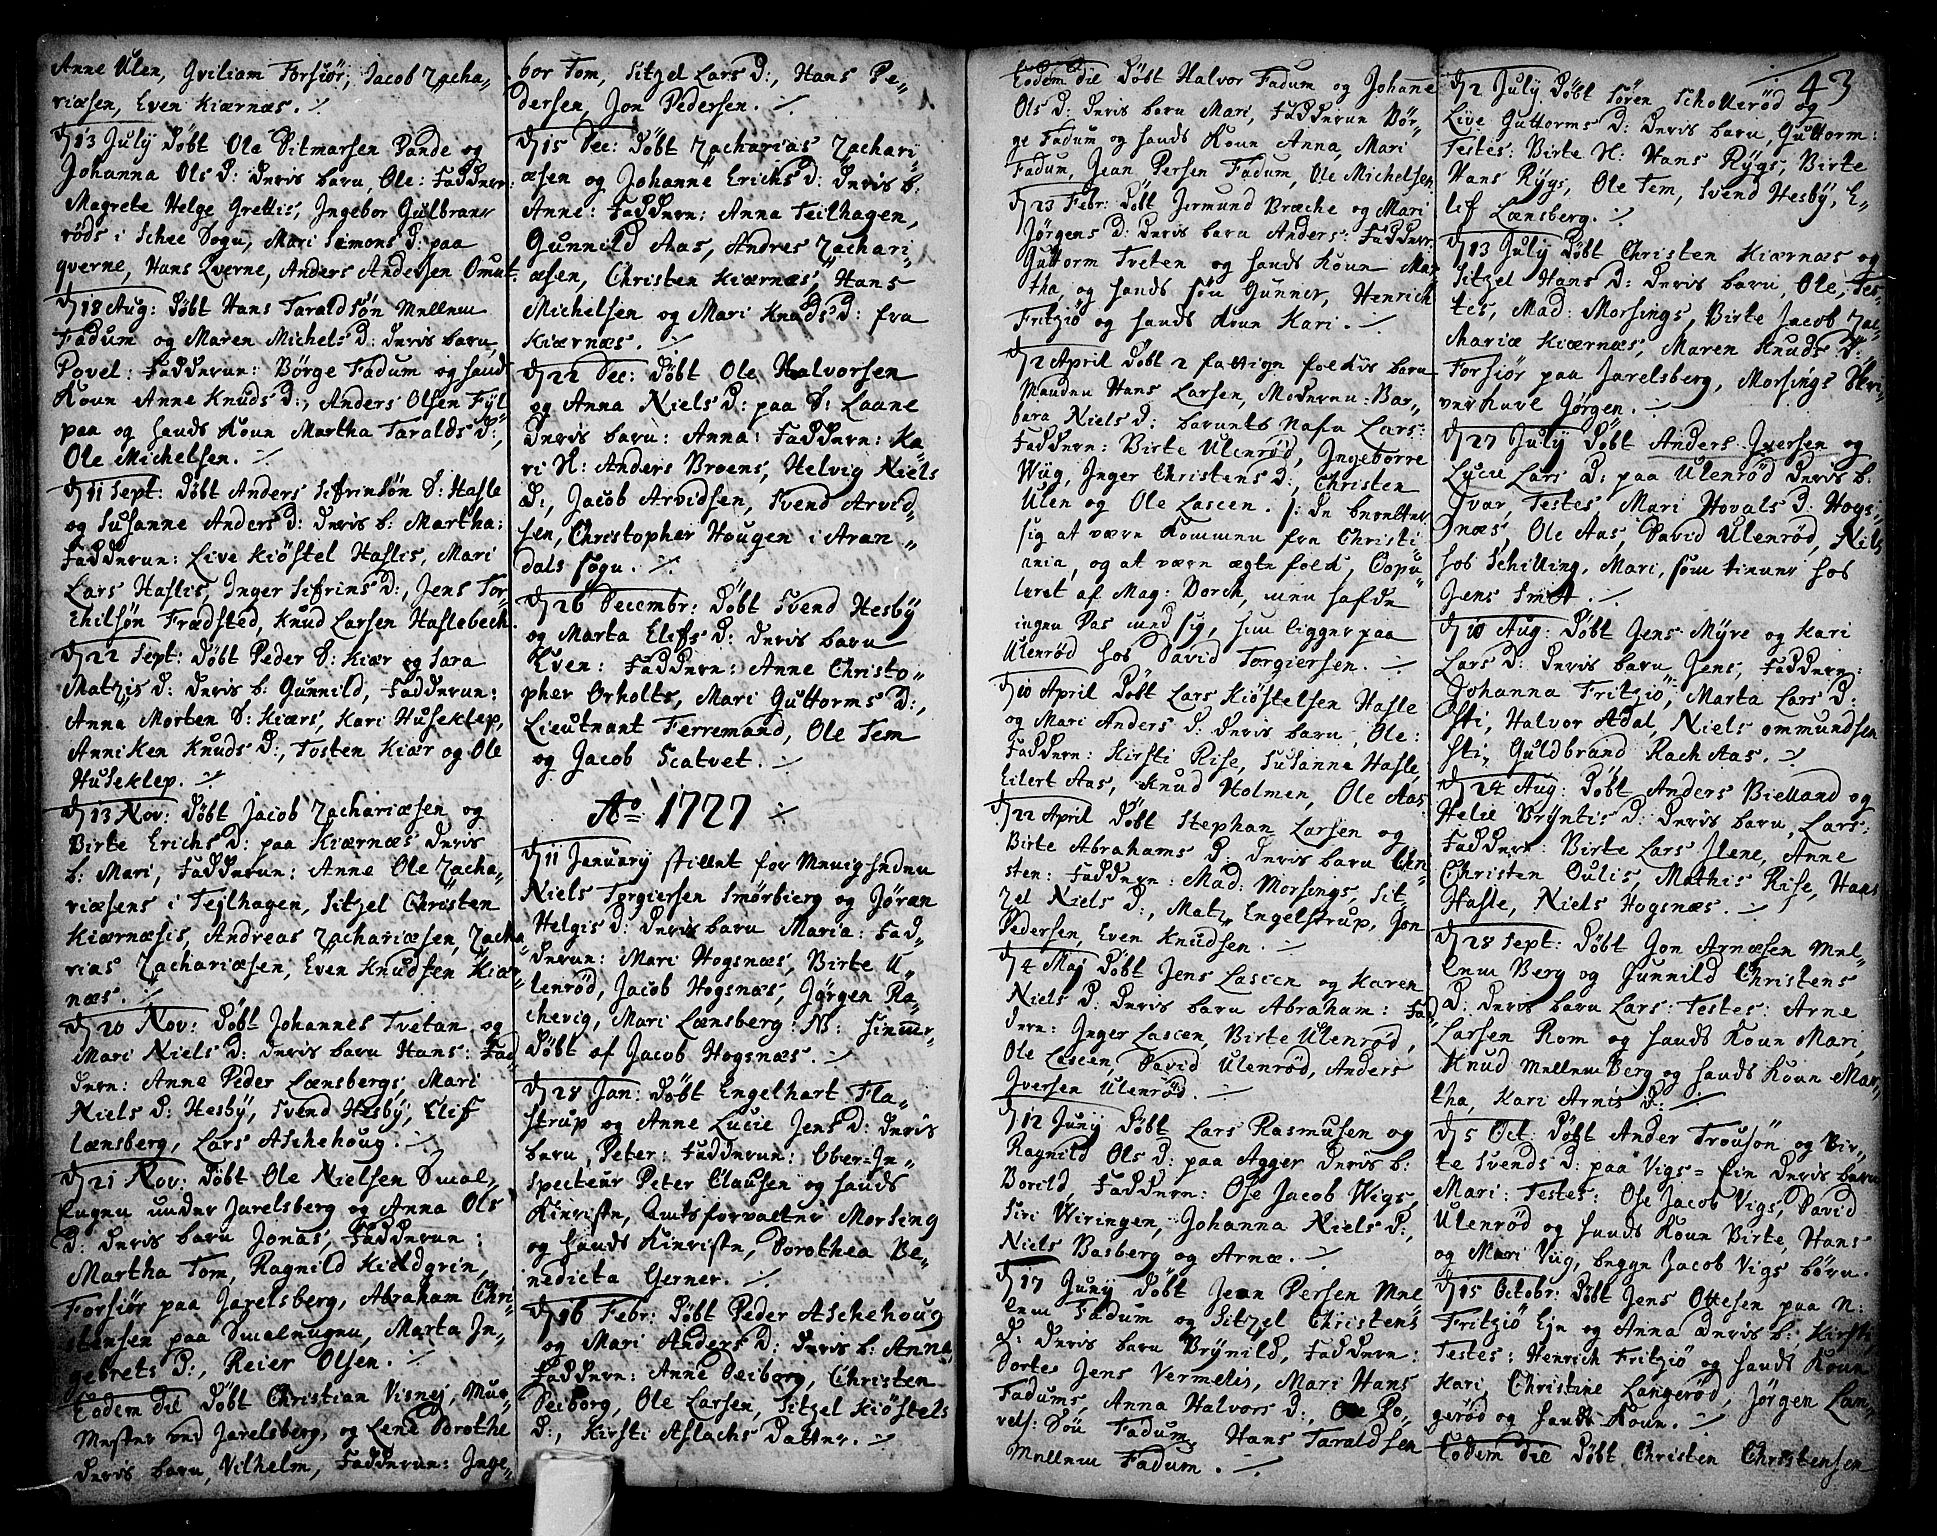 Anne Ulen, Gviliam Forsiör, Jacob Zacha-
riæsen, Even Kiærnæs. ./.
d 13 July Döbt Ole Ditmarsen Sande og
Johanna Ols D: deris barn, Ole: Faddern:
Magrete Helge Grettis, Ingebor Gulbrans
röds i Schee Sogn, Mari Simons D: paa
qverne, Hans Qverne, Anders Andersen Omut.
d 18 Aug: Döbt Hans Taraldsön Mellem
Fadum og Maren Michels D: deris barn,
Povel: Fadderen: Börge Fadum og hands
Koun Anne Knuds D:, Anders Olsen Fyl
paa og hands Koun Martha Taralds D:,
Ole Michelsen. ./.
d 11 Sept: Döbt Anders Sifrinsön S: Hasle
og Susanne Anders D: deris b: Martha:
Fadderen: Live Kiöstel Haslis, Mari
Lars Haslis, Inger Sifrins D:, Jens Tor-
chilsön Frædsted, Knud Larsen Haslebech.
d 22 Sept: Döbt Peder S: Kiær og Sara
Matzis D: deris b: Gunnild, Fadderen:
Anna Morten S: Kiærs, Kari Huseklep,
Anniken Knuds D:, Tosten Kiær og Ole
Huseklep. ./.
d 13 Nov: Döbt Jacob Zachariæsen og
Birte Erichs D: paa Kiærnæs deris
b: Mari, Fadderen: Anne Ole Zacha-
riæsens i Tejlhagen, Sitzel Christen
Kiærnæsis, Andreas Zachariæsen, Zacha
rias Zachariæsen, Even Knudsen Kiær-
næs. ./.
d 20 Nov: Döbt Johannes Tvetan og
Mari Niels D: deris barn Hans: Fad
dern: Anne Peder Lænsbergs, Mari
Niels D: Hesby, Svend Hesby, Elif
Lænsberg, Lars Aschehoug. ./.
d 21 Nov: Döbt Ole Nielsen Smal-
Engen under Jarelsberg og Anna Ols
D: deris barn Jonas, Fadderen:
Martha Tom, Ragnild Kieldgrin,
Forsiör paa Jarelsberg, Abraham Chri-
stensen paa Smalnugnen, Marta In-
gebrets D:, Reier Olsen. ./.
Eodem die Döbt Christian Visnej, Mur
Mester ved Jarelsberg, og Lene Dorothe
deris barn, Vilhelm, Fadderen: Inge-
bor Tom, Sitzel Lars D:, Hans Pe-
dersen, Jon Pedersen. ./.
d 15 Dec: Döbt Zacharias Zachari-
æsen og Johanne Erichs D: deris b:
Anne: Faddern: Anna Teilhagen,
Gunnild Aas, Andres Zachari-
æsen, Christen Kiærnæs, Hans
Michelsen og Mari Knuds D: fra
Kiærnæs. ./.
d 22 Dec: Döbt Ole Halvorsen
og Anna Niels D: paa S: Laane
deris barn: Anna: Faddern: Ka-
ri H: Anders Broens, Helvig Niels
D:, Jacob Arvidsen, Svend Arvid-
sen, Christopher Hougen i Aran-
dals sogn. ./.
d 26 Decembr: Döbt Svend Hesby
og Marta Elifs D: deris barn
Even: Faddern: Anne Christo-
pher Orholts, Mari Guttorms D:,
Lieutnant Ferremand, Ole Tem
og Jacob Scatvet. ./.
Ao 1727 ./.
d 11 January stillet for Menigheden
Niels Torgiersen Smörbierg og Jöran
Helgis D: deris barn Maria: Fad-
deren: Mari Hogsnæs, Birte U-
lenröd, Jacob Hogsnæs, Jörgen Ra-
chevig, Mari Lænsberg: NB: hiemme
Döbt af Jacob Hogsnæs. ./.
d 28 Jan: Döbt Engelhart Fla-
strup og Anne Lucie Jens D: deris
barn, Peter: Fadderen: Ober-In-
specteur Peter Clausen og hands
Kieriste, Amtsforvalter Morsing
og hands Kieriste, Dorothea Be-
nedicta Gerner. ./.
d 16 Febr: Döbt Peder Aschehoug
og Mari Anders D: deris b: Anna,
Faddern: Anne Seiborg, Christen
Seiborg, Ole Larsen, Sitzel Kiöstels
D:, Kirsti Aslachs Datter. ./.
Eodem die Döbt Halvor Fadum og Johanne
Ols D: deris barn Mari, Fadderen Bör-
ge Fadum og hands Koun Anna, Mari
Fadum, Jean Persen Fadum, Ole Michelsen.
d 23 Febr: Döbt Jermund Bræche og Mari
Jörgens D: deris barn Anders: Fadder:
Guttorm Tveten og hands Koun Mar
tha, og hands sön Gunner, Henrich
Fritziö og hands Koun Kari. ./.
d 2 April Döbt 2 fattign folckis barn
Manden Hans Larsen, Moderen: Bar-
bara Niels D: barnets Nafn Lars:
Faddern: Birte Ulenröd, Ingeborre
Wiig, Inger Christens D:, Christen
Ulen og Ole Lascen. /: de beretter
sig at være kommen fra Christi-
ania, og at være ægte folck, Copu-
leret af Mag: Borch, men hafde
ingen Pas med sig, hun ligger paa
Ulenröd hos David Torgiersen. ./.
d 10 April Döbt Lars Kiöstelsen Hasle
og Mari Anders D: deris barn, Ole:
Faddern: Kirsti Rise, Susanne Hasle,
Eilert Aas, Knud Holmen, Ole Aas
d 22 April Döbt Stephan Larsen og
Birte Abrahams D: deris barn Chri-
sten: Faddern: Mad: Morsings, Sit-
zel Niels D:, Matz Engelstrup, Jon
Pedersen, Even Knudsen. ./.
d 4 Maj Döbt Jens Lascen og Karen
Niels D: deris barn Abraham: Fad-
dern: Inger Lascen, Birte Ulenröd,
Ole Lascen, David Ulenröd, Anders
Iversen Ulenröd. ./.
d 12 Juny Döbt Lars Rasmusen og
Ragnild Ols D: paa Agger deris b:
Borild, Faddern: Ose Jacob Wigs,
Siri Wiringen, Johanna Niels D:,
Niels Basberg og Arnæ. ./.
d 17 Juny Döbt Jean Persen Mel-
lem Fadum og Sitzel Christens
D: deris barn Brynild, Faddern:
Dorte Jens Vermelis, Mari Hans
Fadums, Anna Halvors D:, Ole Po-
vels: Sön Fadum, Hans Taraldsen
Mellem Fadum. ./.
43
d 2 July Döbt Sören Schollerød og
Live Guttorms D: deris barn, Guttorm:
Testes: Birte H: Hans Rygs, Birte
Hans Rygs, Ole Tem, Svend Hesby, E-
lif Lænsberg. ./.
d 13 July Döbt Christen Kiærnæs og
Sitzel Hans D: deris barn, Ole, Tes-
tes, Mad: Morsings, Birte Jacob Zac-
hariæ Kiærnæs, Maren Knuds D:
Forsiör paa Jarelsberg, Morsings Skri-
verkarl Jörgen. ./.
d 27 July Döbt Anders Iversen og
Lucie Lars D: paa Ulenröd deris b:
Ivar, Testes, Mari Hovals D: Hogs-
næs, Ole Aas, David Ulenröd, Niels
hos Schilling, Mari, som tiener hos
Jens Smit. ./.
d 10 Aug: Döbt Jens Myre og Kari
Lars D: deris barn Jens, Faddern:
Johanna Fritziö, Marta Lars D:
Sti, Halvor Adal, Niels Ommundsen
Sti, Guldbrand Rach Aas. ./.
d 24 Aug: Döbt Anders Bielland og
Helie Bryntis D: deris barn, Lars:
Faddern: Birte Lars Ilene, Anne
Christen Oulis, Mathis Rise, Hans
Hasle, Niels Hogsnæs. ./.
d 28 Sept: Döbt Jon Arnæsen Mel-
lem Berg og Gunnild Christens
D: deris barn Lars: Testes: Arne
Larsen Rom og hands Koun Mari,
Knud Mellem Berg og hands Koun Mar-
tha, Kari Arnis D: ./.
d 5 Oct Döbt Ander Trousön og Bir-
te Svends D: paa Vigs= Ein deris barn
Mari: Testes: Ose Jacob Vigs, David
Ulenröd og hands Koun Birte, Hans
og Mari Viig, begge Jacob Vigs börn.
d 15 Octobr: Döbt Jens Ottesen paa N:
Fritziö Eje og Anna deris b: Kirsti,
Testes: Henrich Fritziö og hands Koun
Kari, Christine Langeröd, Jörgen Lan-
geröd og hands Koun. ./.
Eodem die Döbt Christen Christensen